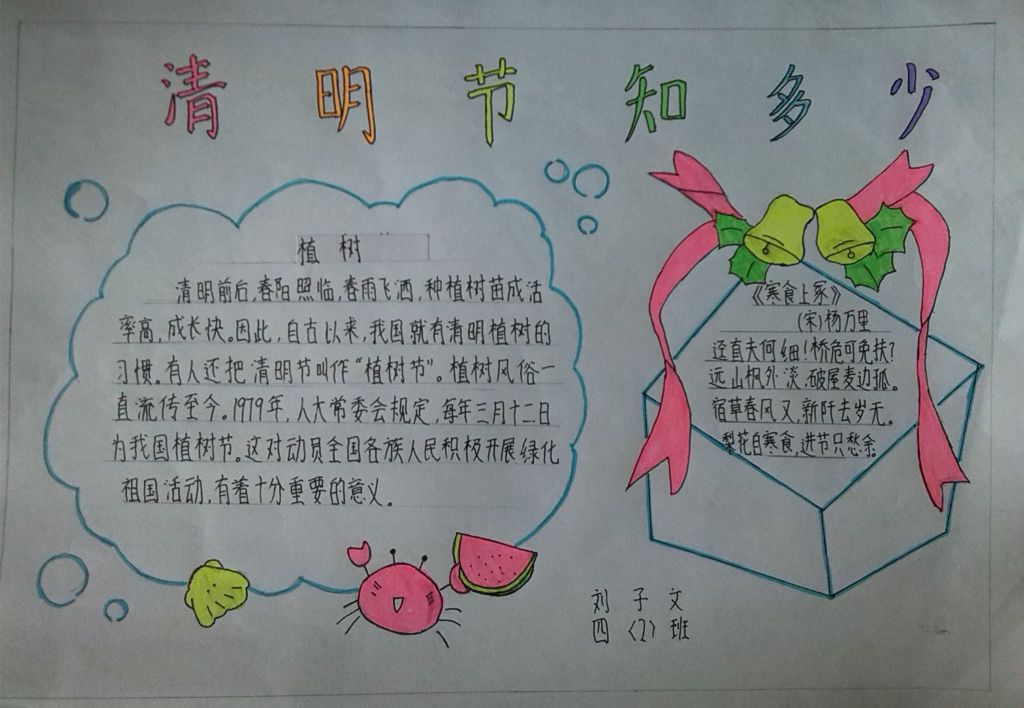 清明节知多少
植树
清明前后,春阳照临,春雨飞洒,种植树苗成活
率高,成长快。因此,自古以来,我国就有清明植树的
习惯。有人还把清明节叫作“植树节”。植树风俗一
直流传至今。1979年,人大常委会规定,每年三月十二日
为我国植树节。这对动员全国各族人民积极开展绿化
祖国活动,有着十分重要的意义。
《寒食上冢》
(宋)杨万里
迳直夫何细!桥危可免扶?
远山枫外淡,破屋麦边孤。
宿草春风又,新阡去岁无。
梨花自寒食,进节只愁余
刘子文
四〈2〉班